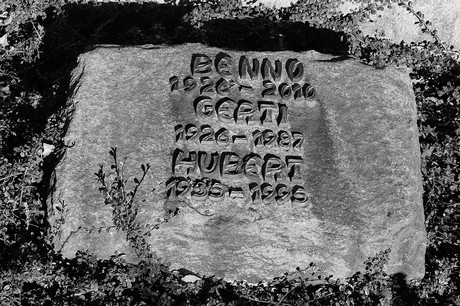 BENNO
1926 - 2010
GERTI
1926 - 1987
HUBERT
1935 - 1995